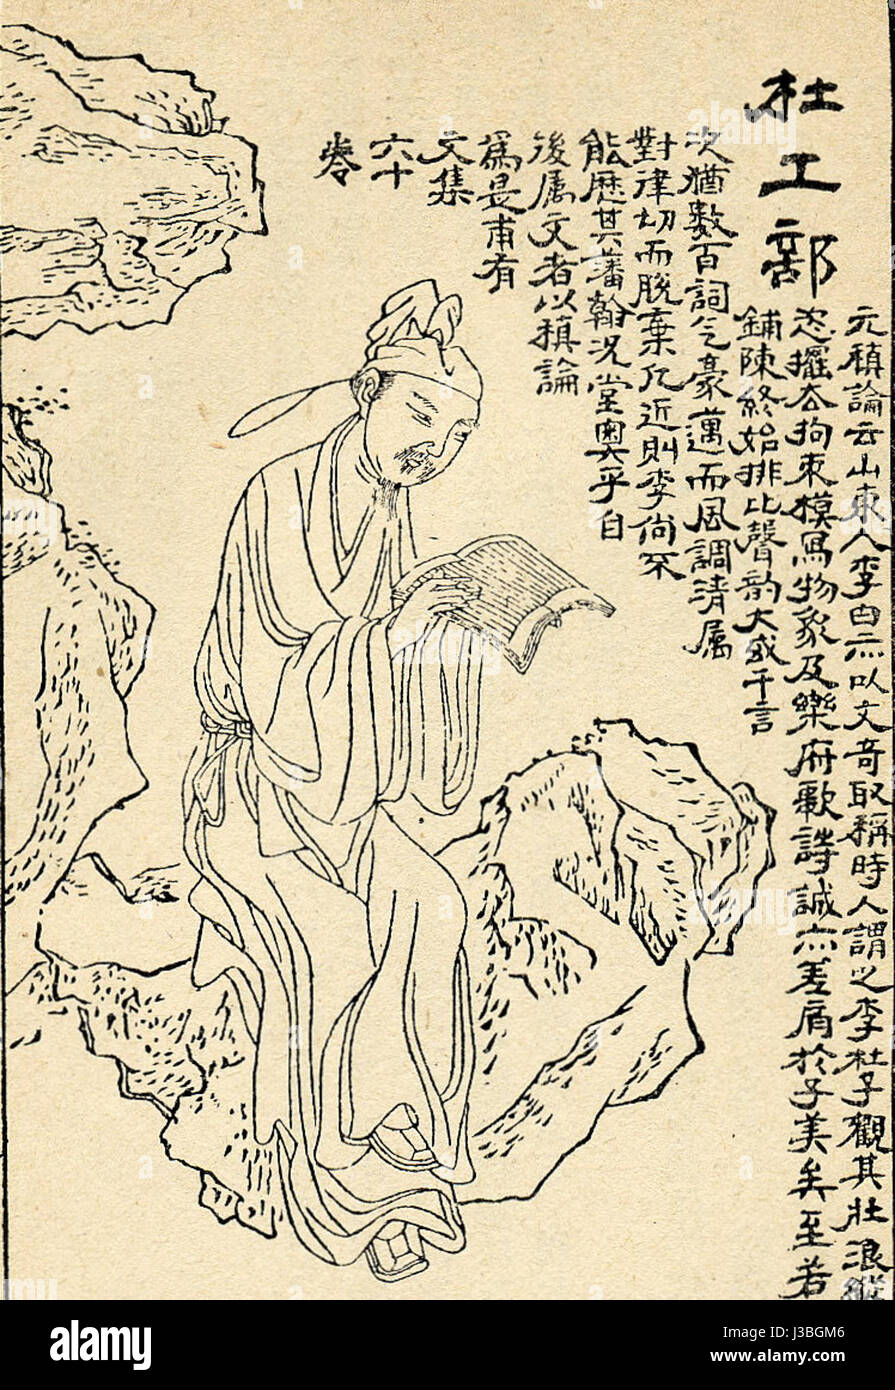 杜工部
元稹論云山東人李白亦以文奇取稱時人謂之李杜予觀其壯浪縱
恣擺去拘束模寫物象及樂府歌詩誠亦差肩於子美矣至若
鋪陳終始排比聲韵大或千言
次猶數百詞气豪邁而風調清属
對律切而脫棄凡近則李尚不
能歷其藩翰況堂奧乎自
後属文者以稹論
為是甫有
文集
六十
卷
alamy
Image ID: J3BGM6
www.alamy.com